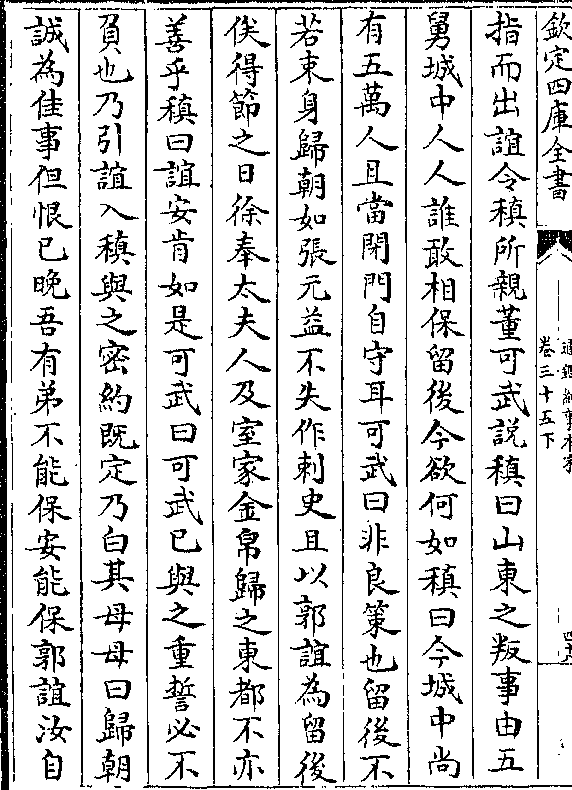 欽定四庫全書
通鑑紀事本末
卷三十五下
指而出誼令稹所親董可武説稹曰山東之叛事由五
舅城中人人誰敢相保留後今欲何如稹曰今城中尚
有五萬人且當閉門自守耳可武曰非良策也留後不
若束身歸朝如張元益不失作刺史且以郭誼為留後
俟得節之日徐奉太夫人及室家金帛歸之東都不亦
善乎稹曰誼安肯如是可武曰可武已與之重誓必不
負也乃引誼入稹與之密約既定乃白其母母曰歸朝
誠為佳事但恨已晚吾有弟不能保安能保郭誼汝自